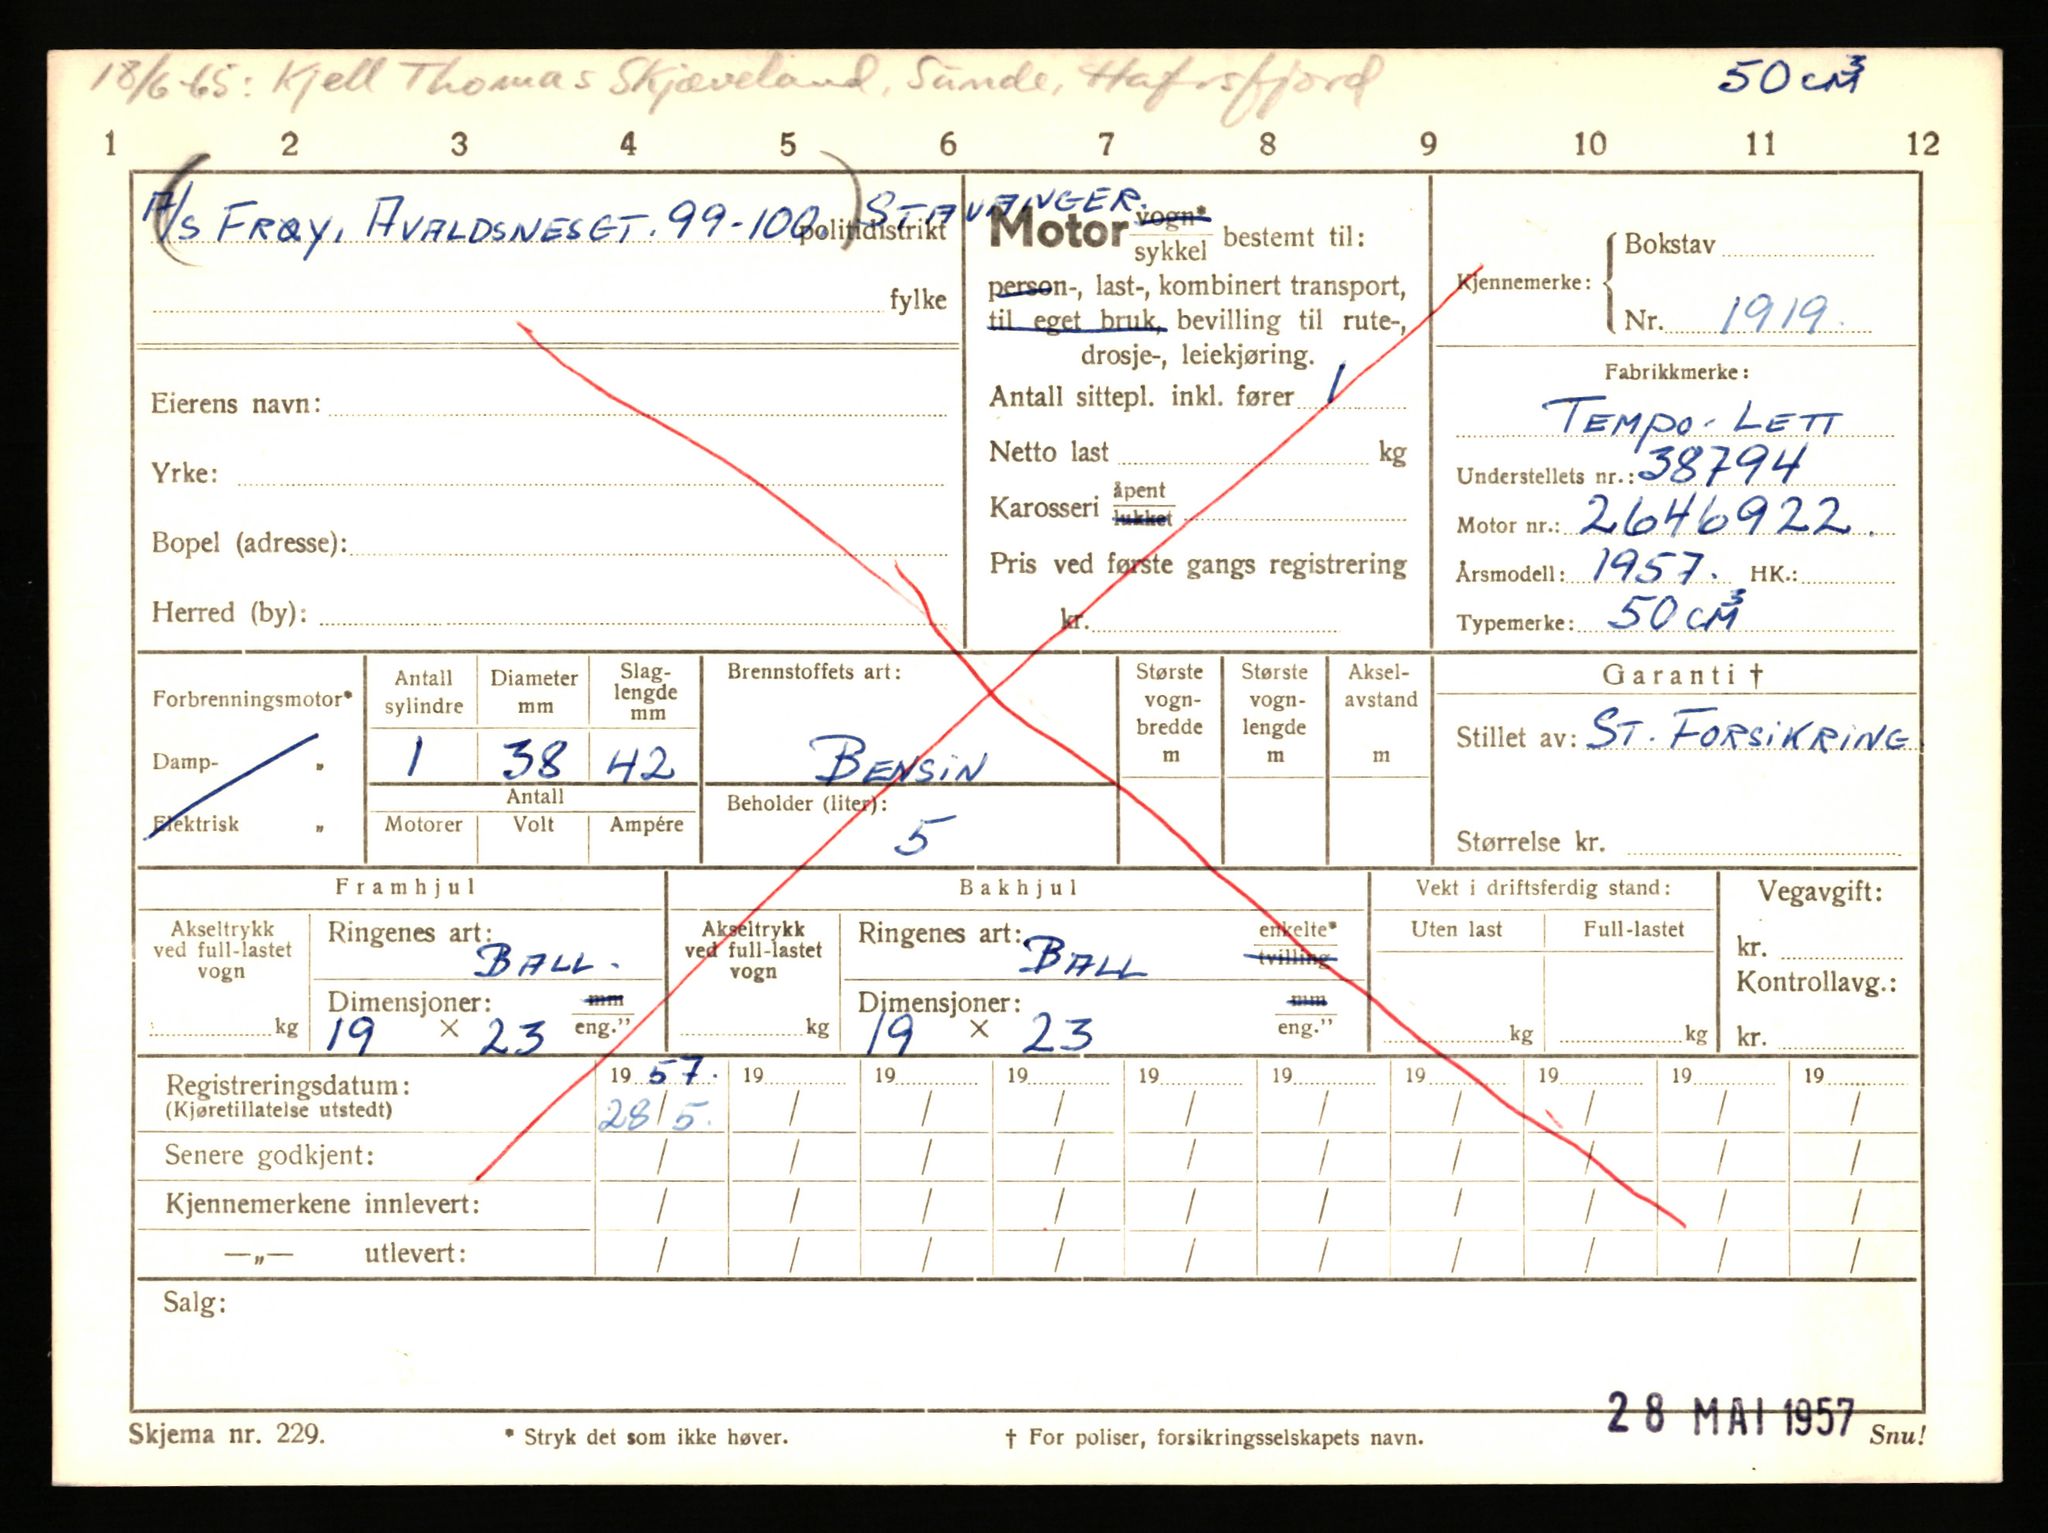 18/6-65: Kjell Thomas Skjæveland, Sunde, Hafrsfjord
50 cm³
1 2 3 4 5 6 7 8 9 10 11 12
(A/S FRØY, AVALDSNESGT. 99-100.) STAVANGER.
politidistrikt
fylke
Eierens navn:
Yrke:
Bopel (adresse):
Herred (by):
Motor vogn*/sykkel bestemt til:
person-, last-, kombinert transport,
til eget bruk, bevilling til rute-,
drosje-, leiekjøring.
Antall sittepl. inkl. fører 1
Netto last kg
Karosseri åpent/lukket
Pris ved første gangs registrering
kr.
Kjennemerke: Bokstav
Nr. 1919.
Fabrikkmerke:
TEMPO-LETT
Understellets nr.: 38794
Motor nr.: 2646922.
Årsmodell: 1957. HK.:
Typemerke: 50 cm³
Forbrenningsmotor*
Damp- „
Elektrisk „
Antall sylindre
1
Diameter mm
38
Slag-
lengde
mm
42
Antall
Motorer Volt Ampére
Brennstoffets art:
BENSIN
Beholder (liter):
5
Største
vogn-
bredde
m
Største
vogn-
lengde
m
Aksel-
avstand
m
Garanti †
Stillet av: ST. FORSIKRING
Størrelse kr.
Framhjul
Akseltrykk
ved full-lastet
vogn
kg
Ringenes art:
BALL.
Dimensjoner: mm/eng."
19 × 23
Bakhjul
Akseltrykk
ved full-lastet
vogn
kg
Ringenes art: enkelte*/tvilling
BALL
Dimensjoner: mm/eng."
19 × 23
Vekt i driftsferdig stand:
Uten last Full-lastet
kg kg
Vegavgift:
kr.
Kontrollavg.:
kr.
Registreringsdatum: 19 57. 19 19 19 19 19 19 19 19 19
(Kjøretillatelse utstedt) 28/5. / / / / / / / / /
Senere godkjent: / / / / / / / / / /
Kjennemerkene innlevert: / / / / / / / / / /
—„— utlevert: / / / / / / / / / /
Salg:
28 MAI 1957
Skjema nr. 229. * Stryk det som ikke høver. † For poliser, forsikringsselskapets navn. Snu!